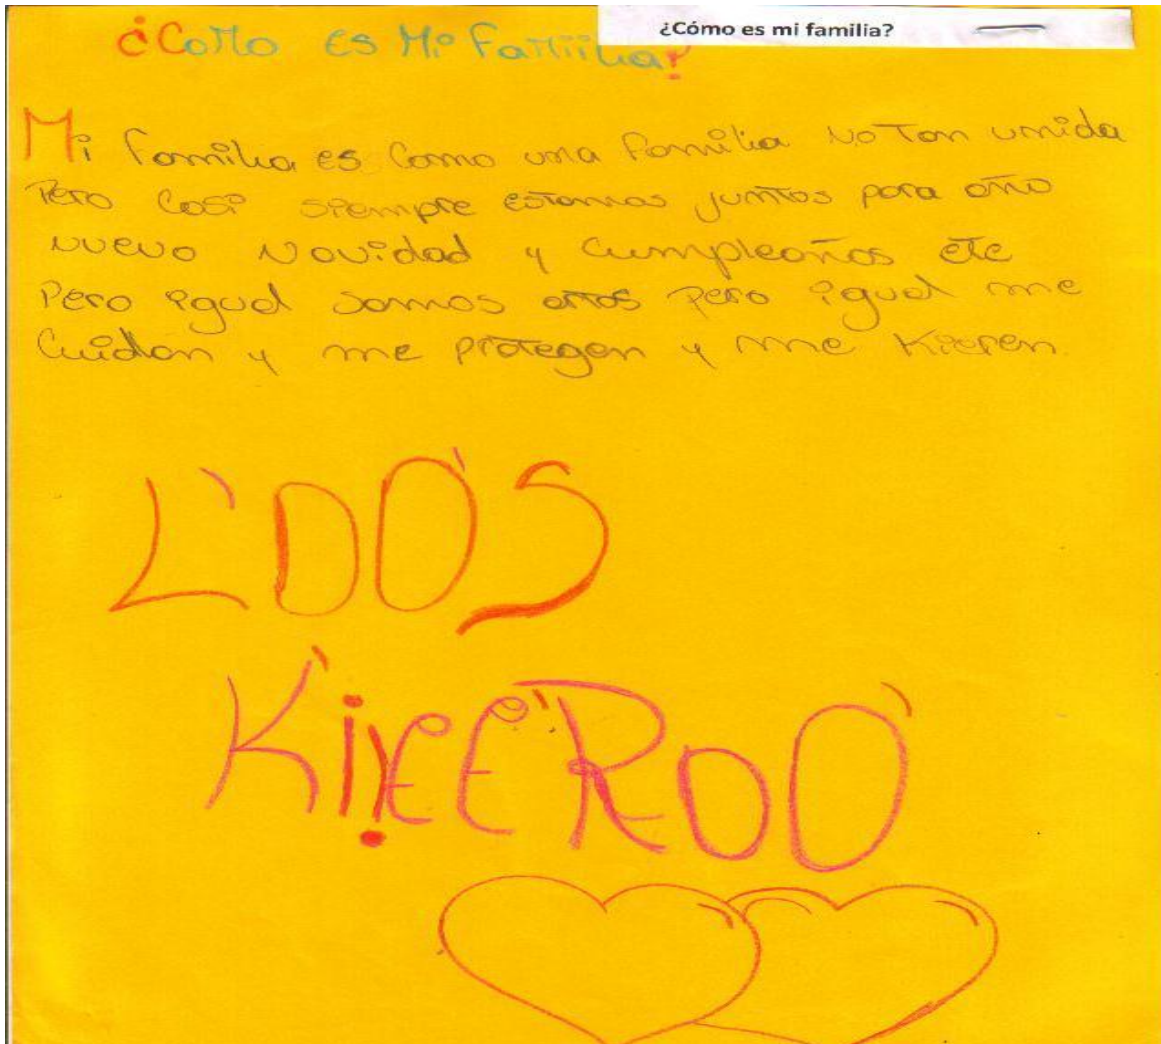 ¿Cómo es mi familia?
¿Como es Mi Famiilia?
Mi familia es como una familia no tan unida
Pero casi siempre estamos juntos para año
nuevo Navidad y Cumpleaños etc
Pero igual somos años pero igual me
Cuidan y me protegen y me Kieren
L'DO'S
K'iiEE'ROO'